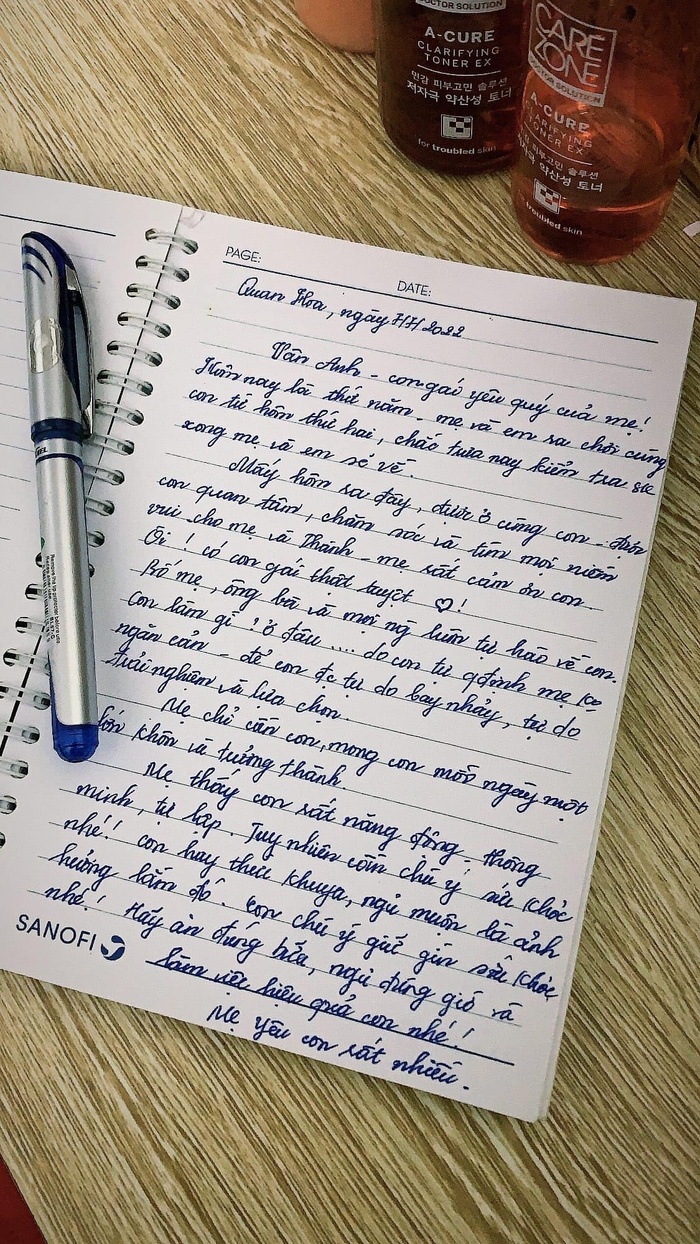 DOCTOR SOLUTION
A-CURE
CLARIFYING
TONER EX
민감 피부고민 솔루션
저자극 약산성 토너
for troubled skin
CARE
ZONE
DOCTOR SOLUTION
A-CURE
CLARIFYING
TONER EX
피부고민 솔루션
저자극 약산성 토너
troubled skin
PAGE:
DATE:
Quan Hoa, ngày 7/7/2022
Vân Anh - con gái yêu quý của mẹ!
Hôm nay là thứ năm - mẹ và em ra chơi cùng
con từ hôm thứ hai, chắc trưa nay kiểm tra sk
xong mẹ và em sẽ về.
Mấy hôm ra đây, được ở cùng con - được
con quan tâm, chăm sóc và tìm mọi niềm
vui cho mẹ và Thành - mẹ rất cảm ơn con.
Ôi! có con gái thật tuyệt ♡!
Bố mẹ, ông bà và mọi ng luôn tự hào về con.
Con làm gì, ở đâu .... do con tự qđịnh mẹ ko
ngăn cản - để con đc tự do bay nhảy, tự do
trải nghiệm và lựa chọn.
Mẹ chỉ cần con, mong con mỗi ngày một
lớn khôn và trưởng thành.
Mẹ thấy con rất năng động - thông
minh, tự lập. Tuy nhiên cần chú ý sức khỏe
nhé! Con hay thức khuya, ngủ muộn là ảnh
hưởng lắm đó. Con chú ý giữ gìn sức khỏe
nhé! Hãy ăn đúng bữa, ngủ đúng giờ và
làm việc hiệu quả con nhé!
Mẹ yêu con rất nhiều.
SANOFI